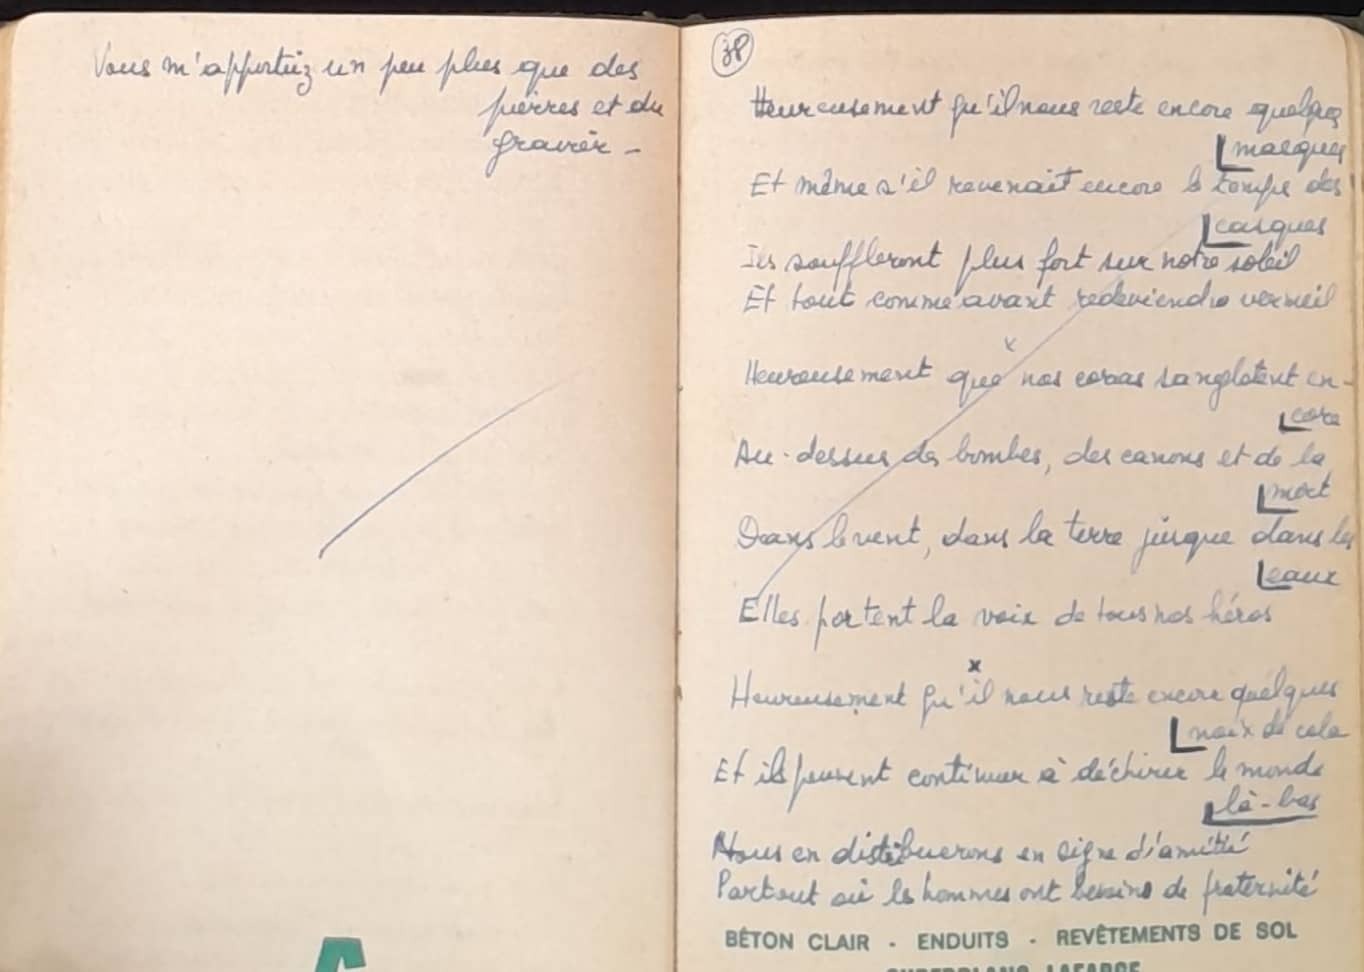 Vous m'apportiez un peu plus que des
pierres et du
gravier -
38
Heureusement qu'il nous reste encore quelques
masques
Et même s'il revenait encore le temps des
casques
Ils souffleront plus fort sur notre soleil
Et tout comme avant redeviendra vermeil
x
Heureusement que nos coras sanglotent en-
core
Au-dessus des bombes, des canons et de la
mort
Dans le vent, dans la terre jusque dans les
eaux
Elles portent la voix de tous nos héros
x
Heureusement qu'il nous reste encore quelques
noix de cola
Et ils peuvent continuer à déchirer le monde
là-bas
Nous en distribuerons en signe d'amitié
Partout où les hommes ont besoins de fraternité
BÉTON CLAIR - ENDUITS - REVÊTEMENTS DE SOL
SUPERBLANC LAFARGE